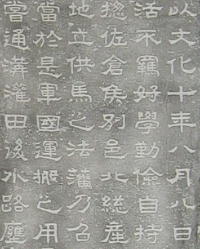 以文化十年八月八日
活不羈好學勤儉自持
佐倉矦別邑北総産
地立供馬之法藩乃名
當於是軍國運搬之用
嘗通溝灌田後水路